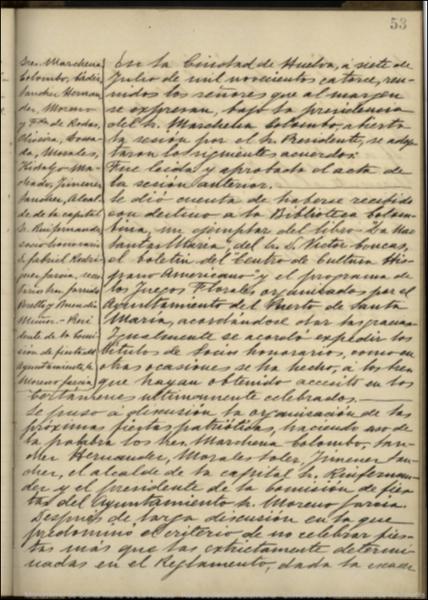 53
Sres. Marchena
Colombo, Cádiz,
Sanchez Hernan-
dez, Moreno
y Fdez de Rodas
Oliveira,
Morales,
Hidalgo Ma-
chado, Jimenez
Sanchez, Alcal-
de de la capital
Sr. Ruifernandez
socio honorario
D. Gabriel Rodri-
guez Garcia, secre-
tario her. Garrido
Perelló y Buendia
Muñoz.- Presi-
dente de la Comi-
sión de fiestas del
Ayuntamiento, Sr.
Moreno Garcia.
En la Ciudad de Huelva, a siete de
Julio de mil novecientos catorce, reu-
nidos los señores que al margen
se expresan, bajo la presidencia
del Sr. Marchena Colombo, abierta
la sesión por el Sr. Presidente, se adop-
taron los siguientes acuerdos:
Fué leida y aprobada el acta de
la sesión anterior.
Se dió cuenta de haberse recibido
con destino a la Biblioteca Colom-
bina, un ejemplar del libro "La Nao
Santa Maria", del Sr. D. Victor Concas,
el boletin del "Centro de Cultura His-
pano Americano" y el programa de
los Juegos Florales, organizados por el
Ayuntamiento del Puerto de Santa
María, acordándose dar las gracias.
Igualmente se acordó expedir los
titulos de socios honorarios, como en
otras ocasiones se ha hecho, a los
que hayan obtenido accesit en los
Certámenes ultimamente celebrados.
Se puso a discusión la organización de las
próximas fiestas patrióticas, haciendo uso de
la palabra los Sres. Marchena Colombo, San-
chez Hernandez, Morales Soler, Jimenez San-
chez, el alcalde de la capital Sr. Ruifernan-
dez y el presidente de la Comisión de fies-
tas del Ayuntamiento Sr. Moreno Garcia.
Después de larga discusión en la que
predominó el criterio de no celebrar fies-
tas más que las extrictamente determi-
nadas en el Reglamento, dada la escasez